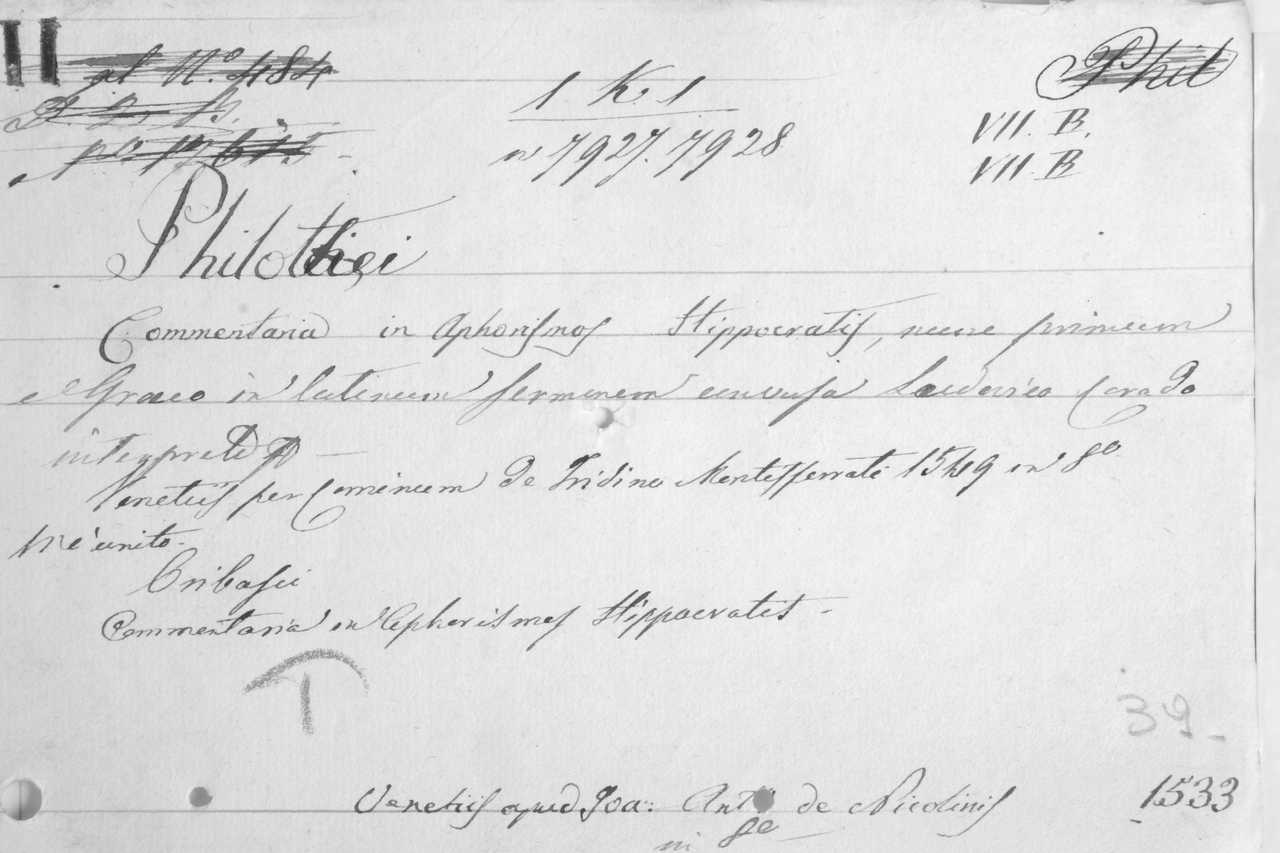 II
N.º 484
1 K. 1
Phil
n 7927. 7928
VII. B.
VII. B
Philothei
Commentaria in Aphorismos Hippocratis, nunc primum
e Graeco in latinum sermonem conversa Ludovico Corado
interprete
Venetiis per Cominum de Tridino Montisferrati 1549 in 8º
Vi è unito.
Oribasii
Commentaria in Aphorismos Hippocratis -
T
39-
Venetiis apud Joa: Antº de Nicolinis 1533
in 8º